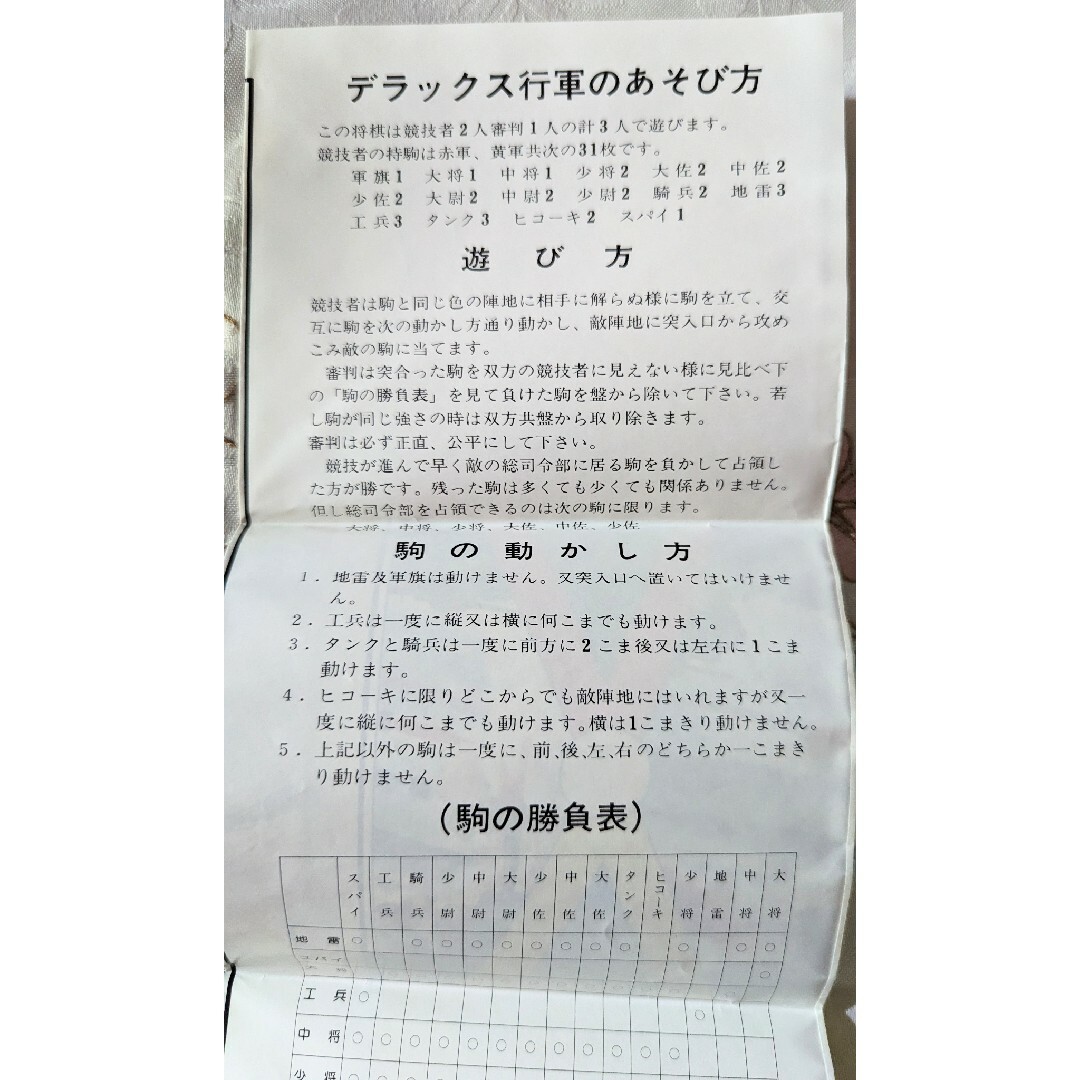 デラックス行軍のあそび方
この将棋は競技者2人審判1人の計3人で遊びます。
競技者の持駒は赤軍、黄軍共次の31枚です。
軍旗1 大将1 中将1 少将2 大佐2 中佐2
少佐2 大尉2 中尉2 少尉2 騎兵2 地雷3
工兵3 タンク3 ヒコーキ2 スパイ1
遊び方
競技者は駒と同じ色の陣地に相手に解らぬ様に駒を立て、交
互に駒を次の動かし方通り動かし、敵陣地に突入口から攻め
こみ敵の駒に当てます。
審判は突合った駒を双方の競技者に見えない様に見比べ下
の「駒の勝負表」を見て負けた駒を盤から除いて下さい。若
し駒が同じ強さの時は双方共盤から取り除きます。
審判は必ず正直、公平にして下さい。
競技が進んで早く敵の総司令部に居る駒を負かして占領し
た方が勝です。残った駒は多くても少くても関係ありません。
但し総司令部を占領できるのは次の駒に限ります。
大将、中将、少将、大佐、中佐、少佐
駒の動かし方
1. 地雷及軍旗は動けません。又突入口へ置いてはいけませ
ん。
2. 工兵は一度に縦又は横に何こまでも動けます。
3. タンクと騎兵は一度に前方に2こま後又は左右に1こま
動けます。
4. ヒコーキに限りどこからでも敵陣地にはいれますが又一
度に縦に何こまでも動けます。横は1こまきり動けません。
5. 上記以外の駒は一度に、前、後、左、右のどちらか一こまき
り動けません。
(駒の勝負表)
スパイ 工兵 騎兵 少尉 中尉 大尉 少佐 中佐 大佐 タンク ヒコーキ 少将 地雷 中将 大将
地雷 ○ ○ ○ ○ ○ ○ ○ ○ ○ ○ ○ ○
スパイ ○
工兵 ○ ○
中将 ○ ○ ○ ○ ○ ○ ○ ○ ○ ○ ○ ○
少将